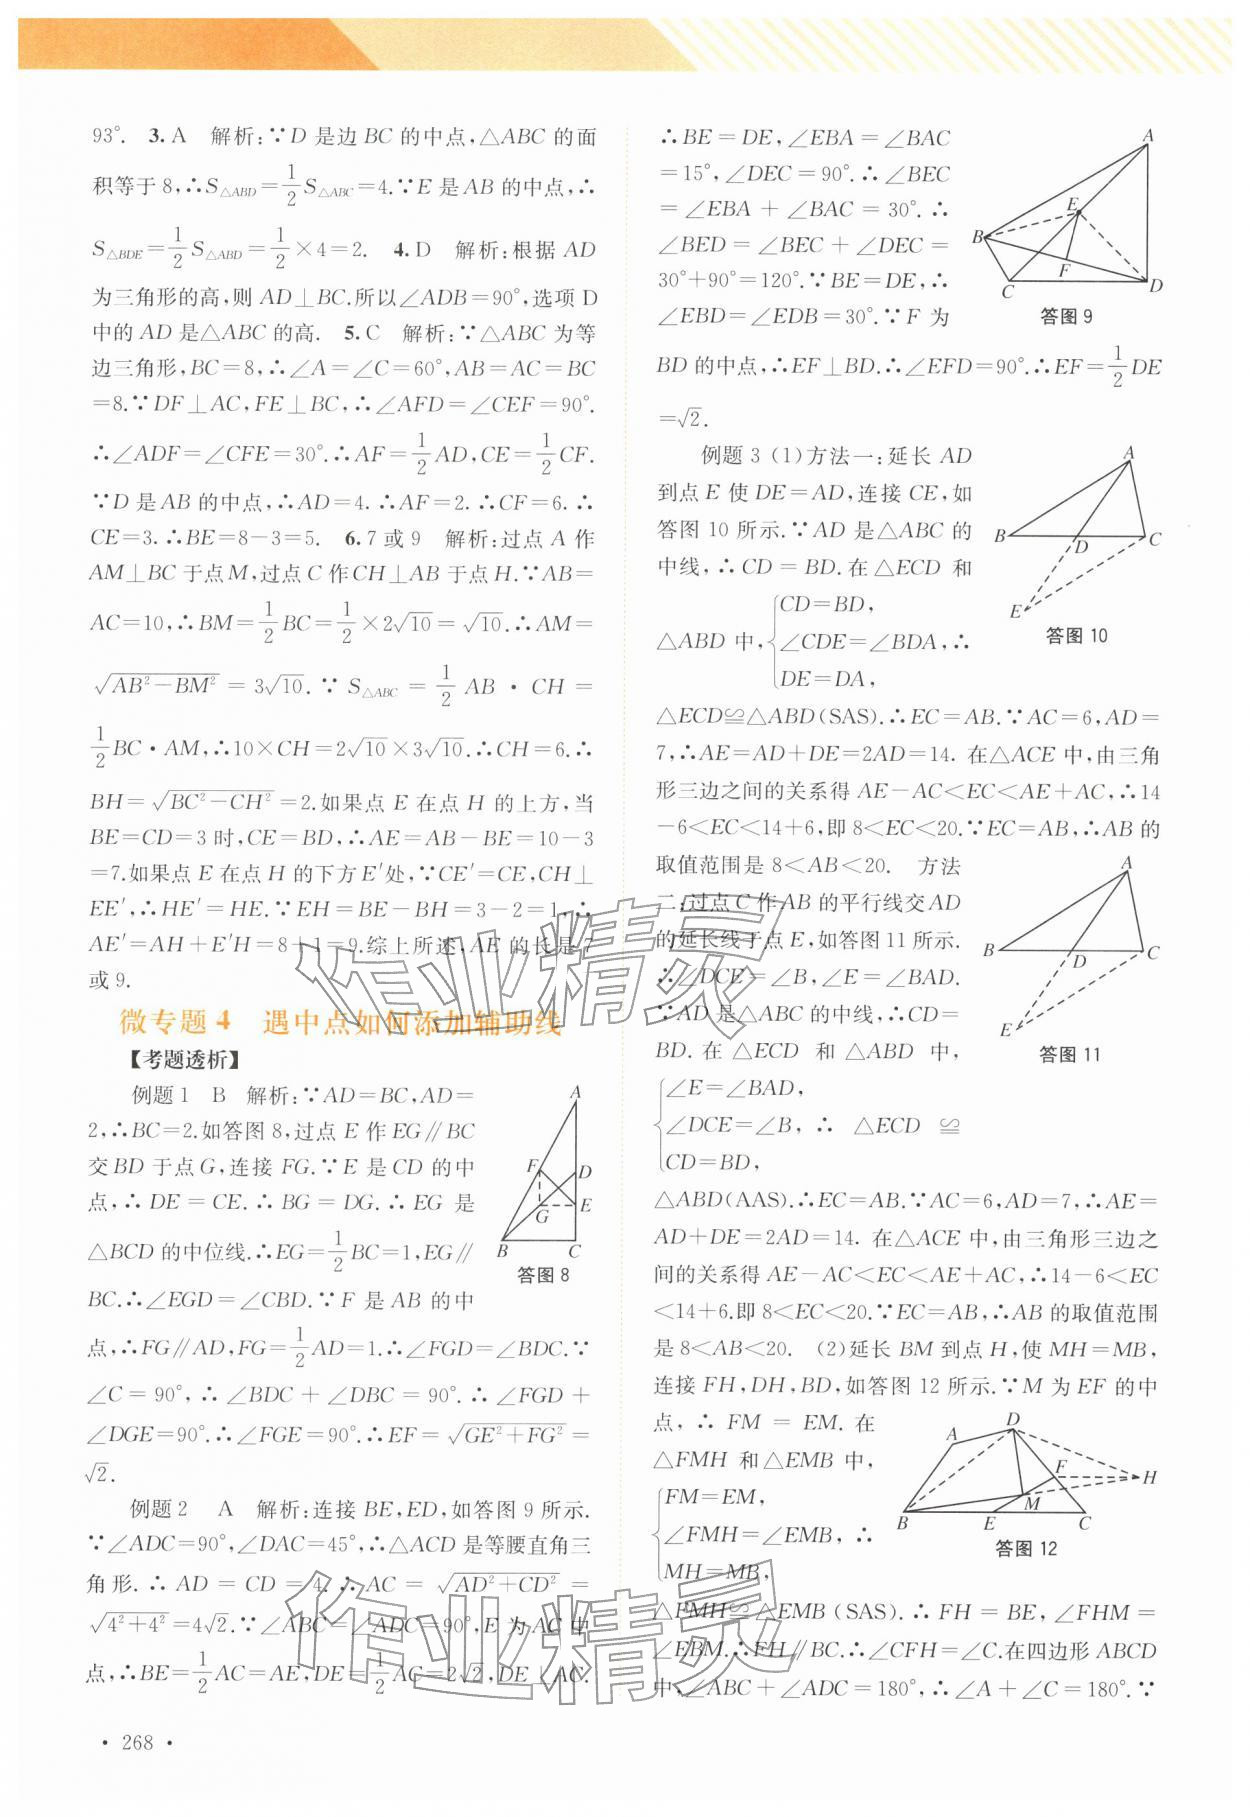 93°. 3. A 解析:∵D 是边 BC 的中点,△ABC 的面
积等于 8,∴S△ABD=1/2 S△ABC=4.∵E 是 AB 的中点,∴
S△BDE=1/2 S△ABD=1/2×4=2. 4. D 解析:根据 AD
为三角形的高,则 AD⊥BC.所以∠ADB=90°,选项 D
中的 AD 是△ABC 的高. 5. C 解析:∵△ABC 为等
边三角形,BC=8,∴∠A=∠C=60°,AB=AC=BC
=8.∵DF⊥AC,FE⊥BC,∴∠AFD=∠CEF=90°.
∴∠ADF=∠CFE=30°.∴AF=1/2 AD,CE=1/2 CF.
∵D 是 AB 的中点,∴AD=4.∴AF=2.∴CF=6.∴
CE=3.∴BE=8-3=5. 6. 7 或 9 解析:过点 A 作
AM⊥BC 于点 M,过点 C 作 CH⊥AB 于点 H.∵AB=
AC=10,∴BM=1/2 BC=1/2×2√10=√10.∴AM=
√(AB²-BM²)=3√10.∵S△ABC=1/2 AB·CH=
1/2 BC·AM,∴10×CH=2√10×3√10.∴CH=6.∴
BH=√(BC²-CH²)=2.如果点 E 在点 H 的上方,当
BE=CD=3 时,CE=BD,∴AE=AB-BE=10-3
=7.如果点 E 在点 H 的下方 E′处,∵CE′=CE,CH⊥
EE′,∴HE′=HE.∵EH=BE-BH=3-2=1,∴
AE′=AH+E′H=8+1=9.综上所述,AE 的长是 7
或 9.
微专题 4 遇中点如何添加辅助线
【考题透析】
例题 1 B 解析:∵AD=BC,AD=
2,∴BC=2.如答图 8,过点 E 作 EG∥BC
交 BD 于点 G,连接 FG.∵E 是 CD 的中
点,∴DE=CE.∴BG=DG.∴EG 是
△BCD 的中位线.∴EG=1/2 BC=1,EG∥
BC.∴∠EGD=∠CBD.∵F 是 AB 的中
点,∴FG∥AD,FG=1/2 AD=1.∴∠FGD=∠BDC.∵
∠C=90°,∴∠BDC+∠DBC=90°.∴∠FGD+
∠DGE=90°.∴∠FGE=90°.∴EF=√(GE²+FG²)=
√2.
A
F
D
G
E
B
C
答图 8
例题 2 A 解析:连接 BE,ED,如答图 9 所示.
∵∠ADC=90°,∠DAC=45°,∴△ACD 是等腰直角三
角形.∴AD=CD=4.∴AC=√(AD²+CD²)=
√(4²+4²)=4√2.∵∠ABC=∠ADC=90°,E 为 AC 中
点,∴BE=1/2 AC=AE,DE=1/2 AC=2√2,DE⊥AC.
· 268 ·
∴BE=DE,∠EBA=∠BAC
=15°,∠DEC=90°.∴∠BEC
=∠EBA+∠BAC=30°.∴
∠BED=∠BEC+∠DEC=
30°+90°=120°.∵BE=DE,∴
∠EBD=∠EDB=30°.∵F 为
BD 的中点,∴EF⊥BD.∴∠EFD=90°.∴EF=1/2 DE
=√2.
A
E
B
F
C
D
答图 9
例题 3 (1)方法一:延长 AD
到点 E 使 DE=AD,连接 CE,如
答图 10 所示.∵AD 是△ABC 的
中线,∴CD=BD.在△ECD 和
△ABD 中,{CD=BD,
∠CDE=∠BDA,∴
DE=DA,
A
B
D
C
E
答图 10
△ECD≌△ABD(SAS).∴EC=AB.∵AC=6,AD=
7,∴AE=AD+DE=2AD=14. 在△ACE 中,由三角
形三边之间的关系得 AE-AC<EC<AE+AC,∴14
-6<EC<14+6,即 8<EC<20.∵EC=AB,∴AB 的
取值范围是 8<AB<20. 方法
二:过点 C 作 AB 的平行线交 AD
的延长线于点 E,如答图 11 所示.
∴∠DCE=∠B,∠E=∠BAD.
∵AD 是△ABC 的中线,∴CD=
BD.在△ECD 和△ABD 中,
{∠E=∠BAD,
∠DCE=∠B,∴△ECD≌
CD=BD,
A
B
D
C
E
答图 11
△ABD(AAS).∴EC=AB.∵AC=6,AD=7,∴AE=
AD+DE=2AD=14. 在△ACE 中,由三角形三边之
间的关系得 AE-AC<EC<AE+AC,∴14-6<EC
<14+6.即 8<EC<20.∵EC=AB,∴AB 的取值范围
是 8<AB<20. (2)延长 BM 到点 H,使 MH=MB,
连接 FH,DH,BD,如答图 12 所示.∵M 为 EF 的中
点,∴FM=EM.在
△FMH 和△EMB 中,
{FM=EM,
∠FMH=∠EMB,∴
MH=MB,
D
A
F
H
M
B
E
C
答图 12
△FMH≌△EMB(SAS).∴FH=BE,∠FHM=
∠EBM.∴FH∥BC.∴∠CFH=∠C.在四边形 ABCD
中,∠ABC+∠ADC=180°,∴∠A+∠C=180°.∵
作业精灵
作业精灵